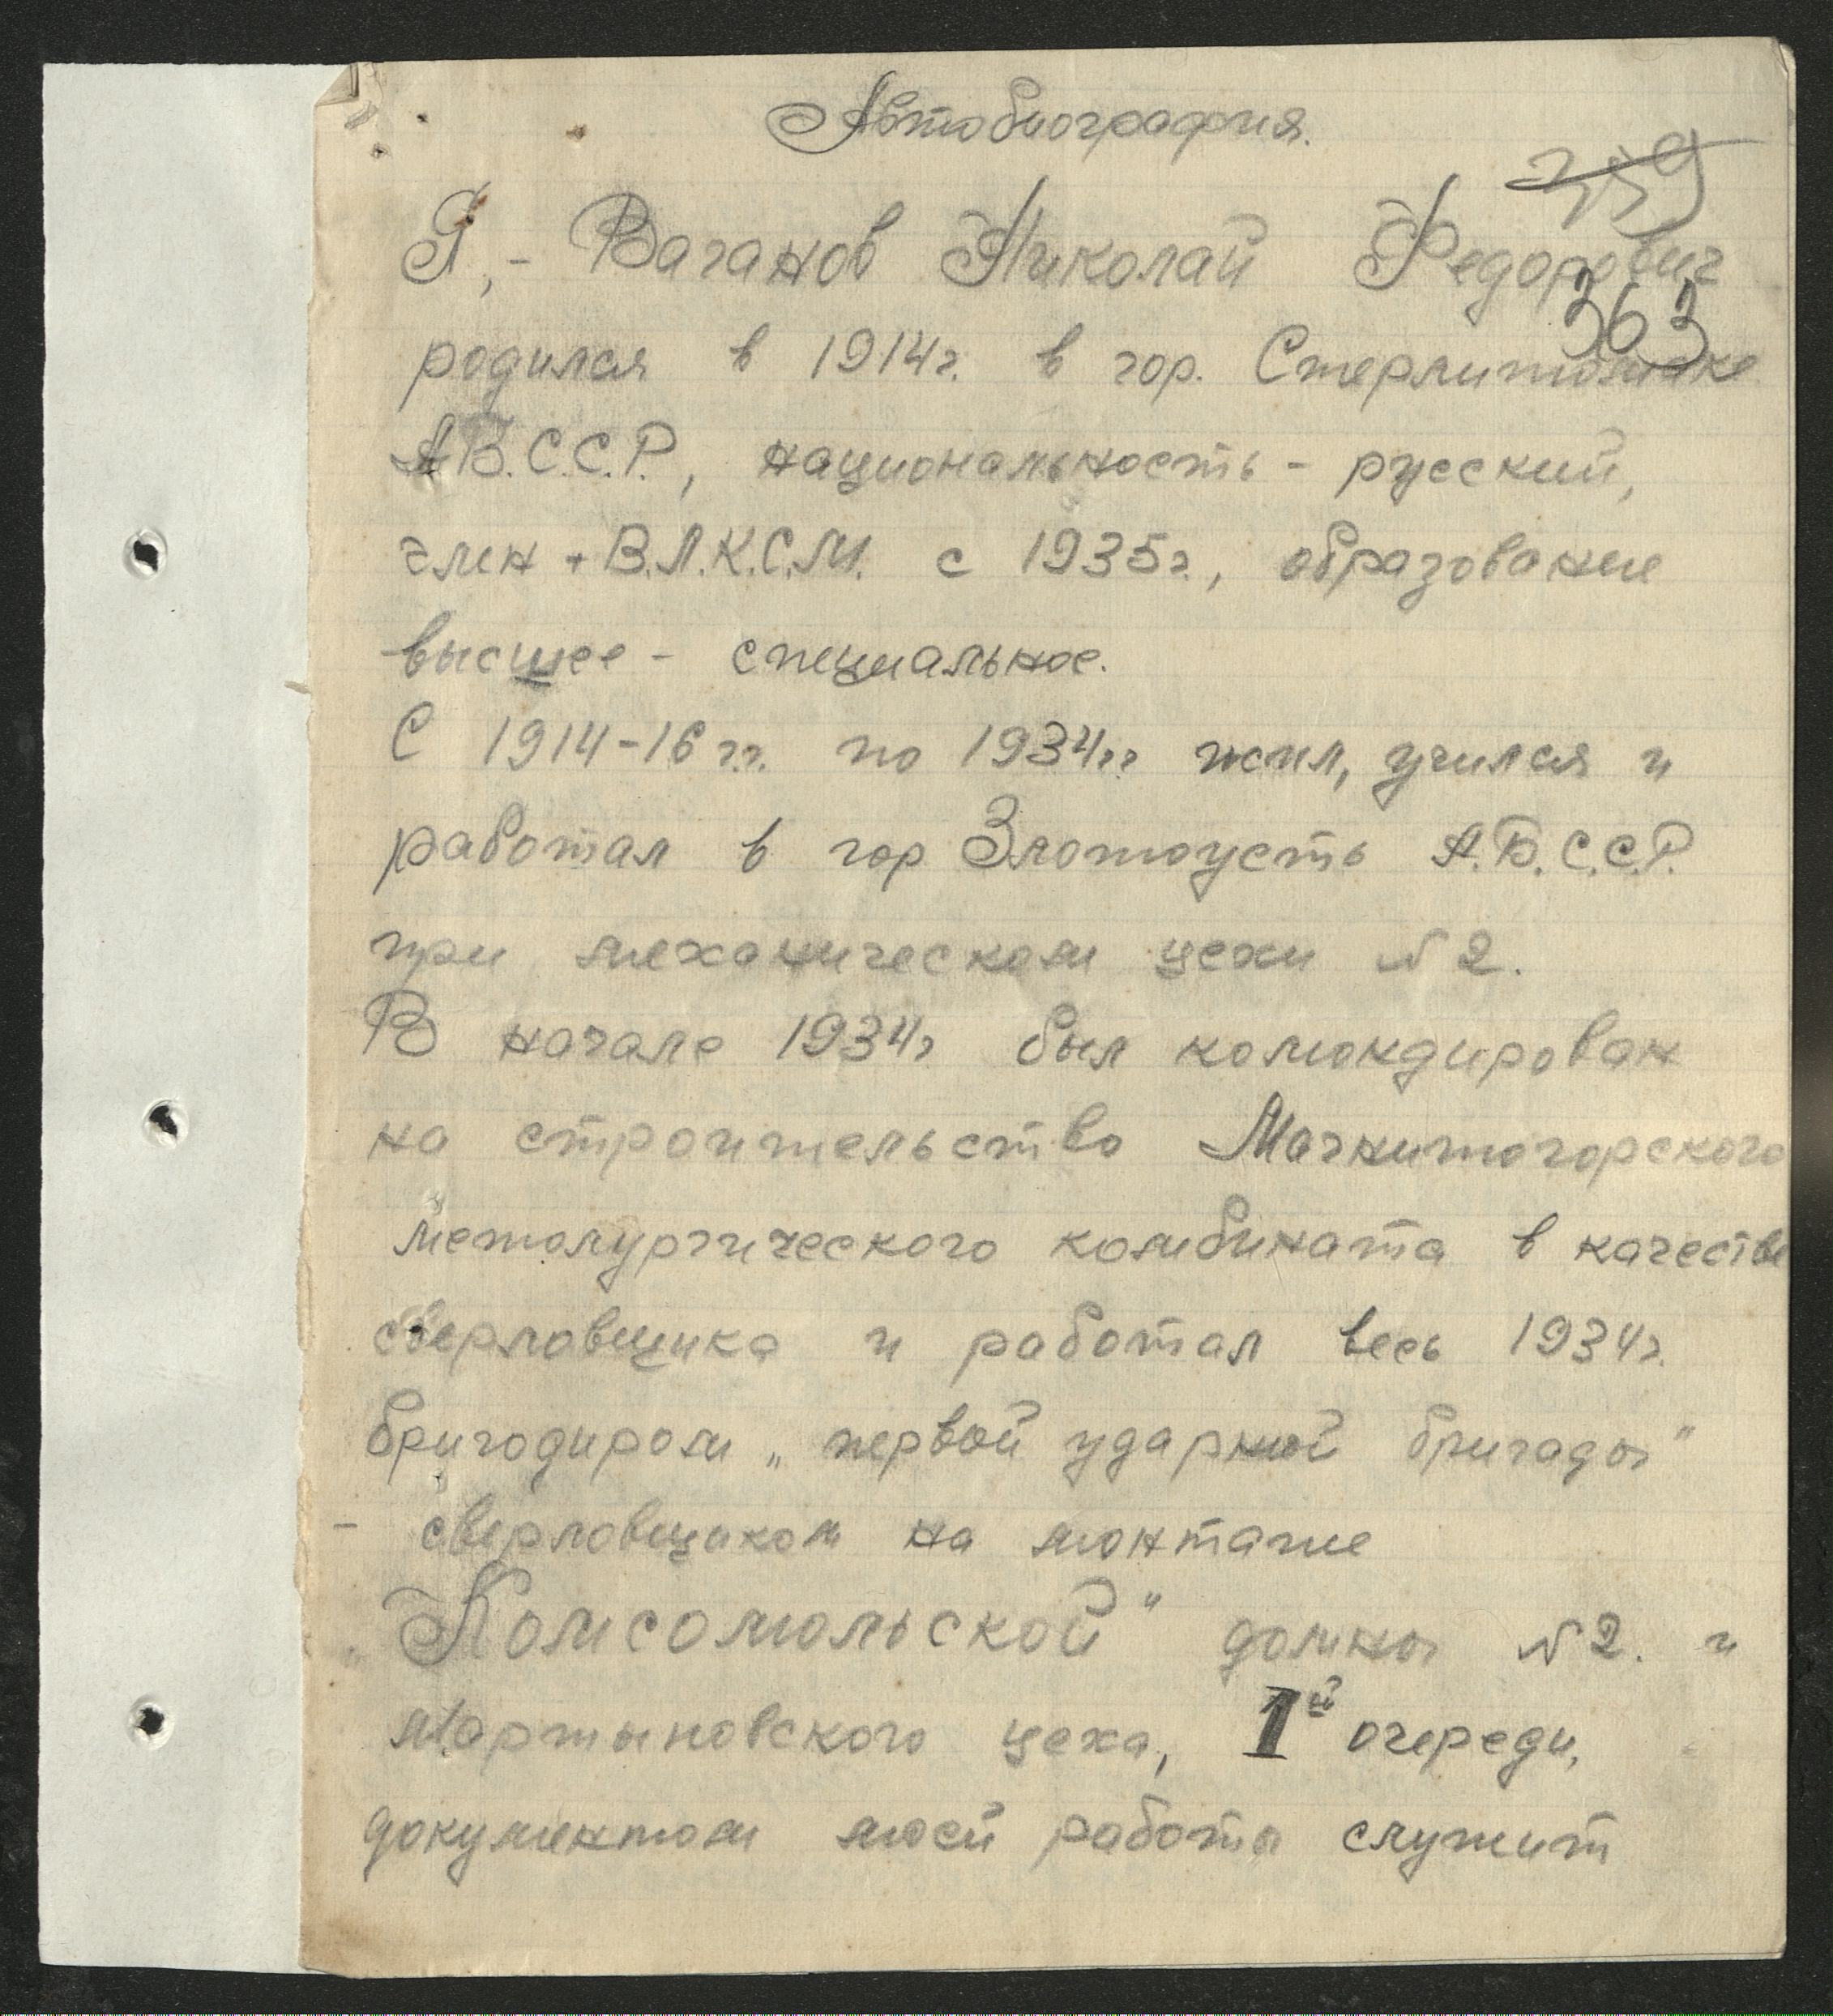 Автобиография.
359
Я,- Ваганов Николай Федорович
363
родился в 1914г. в гор. Стерлитомаке
А.Б.С.С.Р., национальность - русский,
член В.Л.К.С.М. с 1935г., образование
высшее - специальное.
С 1914-16 г.г. по 1934гг жил, учился и
работал в гор. Злотоусть А.Б.С.С.Р.
при механическом цехи №2.
В начале 1934г был комондирован
но строительство Магнитогорского
метолургического комбината в качестве
сверловщика и работал весь 1934г.
бригодиром „первой ударной бригады"
- сверловщиком на монтаже
„Комсомольской" домны №2. и
Мартыновского цеха, 1й очереди,
документом моей работы служит